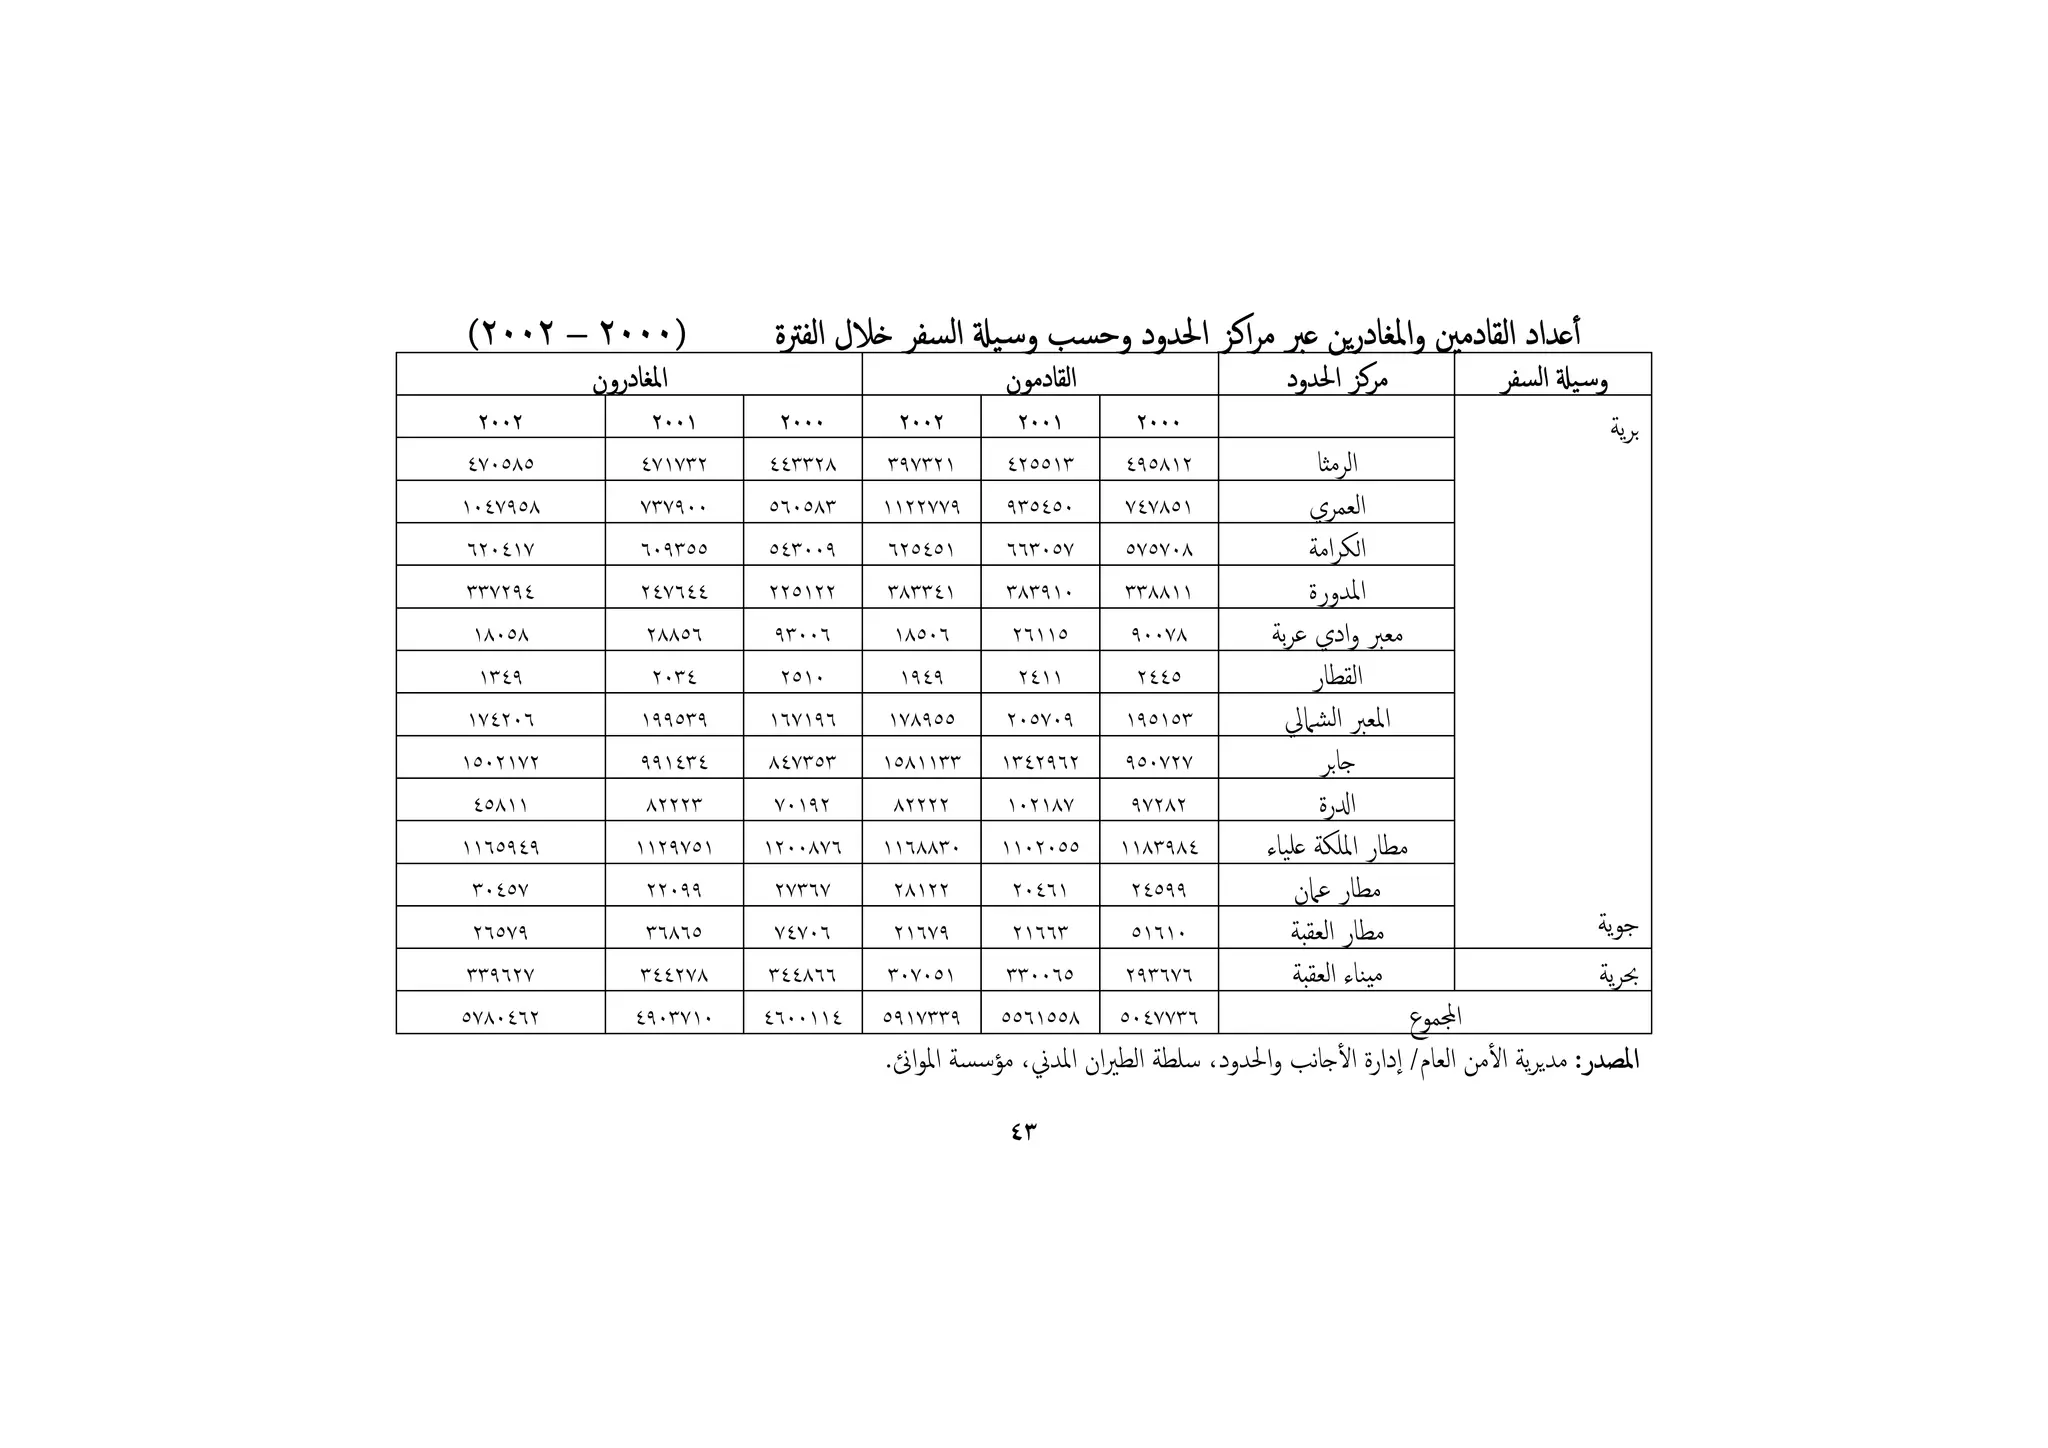 أعداد القادمين والمغادرين عبر مراكز الحدود وحسب وسيلة السفر خلال الفترة (٢٠٠٠ – ٢٠٠٢)
وسيلة السفر مركز الحدود القادمون المغادرون
برية ٢٠٠٠ ٢٠٠١ ٢٠٠٢ ٢٠٠٠ ٢٠٠١ ٢٠٠٢
الرمثا ٤٩٥٨١٢ ٤٢٥٥١٣ ٣٩٧٣٢١ ٤٤٣٣٢٨ ٤٧١٧٣٢ ٤٧٠٥٨٥
العمري ٧٤٧٨٥١ ٩٣٥٤٥٠ ١١٢٢٧٧٩ ٥٦٠٥٨٣ ٧٣٧٩٠٠ ١٠٤٧٩٥٨
الكرامة ٥٧٥٧٠٨ ٦٦٣٠٥٧ ٦٢٥٤٥١ ٥٤٣٠٠٩ ٦٠٩٣٥٥ ٦٢٠٤١٧
المدورة ٣٣٨٨١١ ٣٨٣٩١٠ ٣٨٣٣٤١ ٢٢٥١٢٢ ٢٤٧٦٤٤ ٣٣٧٢٩٤
معبر وادي عربة ٩٠٠٧٨ ٢٦١١٥ ١٨٥٠٦ ٩٣٠٠٦ ٢٨٨٥٦ ١٨٠٥٨
القطار ٢٤٤٥ ٢٤١١ ١٩٤٩ ٢٥١٠ ٢٠٣٤ ١٣٤٩
المعبر الشمالي ١٩٥١٥٣ ٢٠٥٧٠٩ ١٧٨٩٥٥ ١٦٧١٩٦ ١٩٩٥٣٩ ١٧٤٢٠٦
جابر ٩٥٠٧٢٧ ١٣٤٢٩٦٢ ١٥٨١١٣٣ ٨٤٧٣٥٣ ٩٩١٤٣٤ ١٥٠٢١٧٢
الدرة ٩٧٢٨٢ ١٠٢١٨٧ ٨٢٢٢٢ ٧٠١٩٢ ٨٢٢٢٣ ٤٥٨١١
مطار الملكة علياء ١١٨٣٩٨٤ ١١٠٢٠٥٥ ١١٦٨٨٣٠ ١٢٠٠٨٧٦ ١١٢٩٧٥١ ١١٦٥٩٤٩
مطار عمان ٢٤٥٩٩ ٢٠٤٦١ ٢٨١٢٢ ٢٧٣٦٧ ٢٢٠٩٩ ٣٠٤٥٧
جوية مطار العقبة ٥١٦١٠ ٢١٦٦٣ ٢١٦٧٩ ٧٤٧٠٦ ٣٦٨٦٥ ٢٦٥٧٩
بحرية ميناء العقبة ٢٩٣٦٧٦ ٣٣٠٠٦٥ ٣٠٧٠٥١ ٣٤٤٨٦٦ ٣٤٤٢٧٨ ٣٣٩٦٢٧
المجموع ٥٠٤٧٧٣٦ ٥٥٦١٥٥٨ ٥٩١٧٣٣٩ ٤٦٠٠١١٤ ٤٩٠٣٧١٠ ٥٧٨٠٤٦٢
المصدر: مديرية الأمن العام/ إدارة الأجانب والحدود، سلطة الطيران المدني، مؤسسة الموانئ.
٤٣